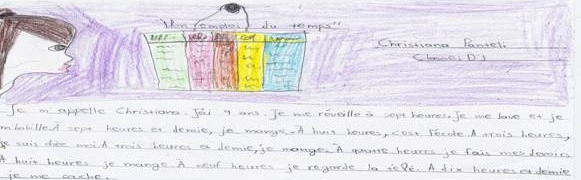 "Mon emploi du temps"
Christiana Panteli
Classe: D'1
Je m'appelle Christiana. J'ai 9 ans. Je me réveille à sept heures. Je me lave et je
m'habille. A sept heures et demie, je mange. A huit heures, c'est l'école. A trois heures,
je suis chez moi. A trois heures et demie, je mange. A quatre heures je fais mes devoirs
A huit heures je mange. A neuf heures je regarde la télé. A dix heures et demie
je me couche.